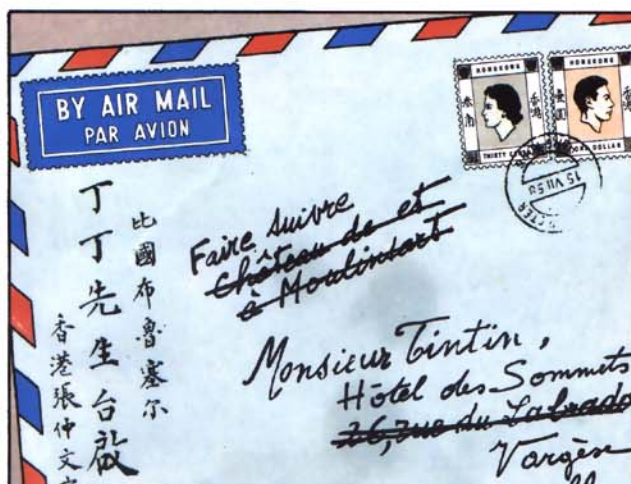 BY AIR MAIL
PAR AVION
HONGKONG
香港
THIRTY
HONGKONG
壹圓
香港
DOLLAR
15 VII 58
比國布魯塞尔
丁丁先生台啟
香港張仲文
Faire suivre
Château de et
à Moulinsart
Monsieur Tintin,
Hôtel des Sommets
26, rue du Labrado
Vargèse